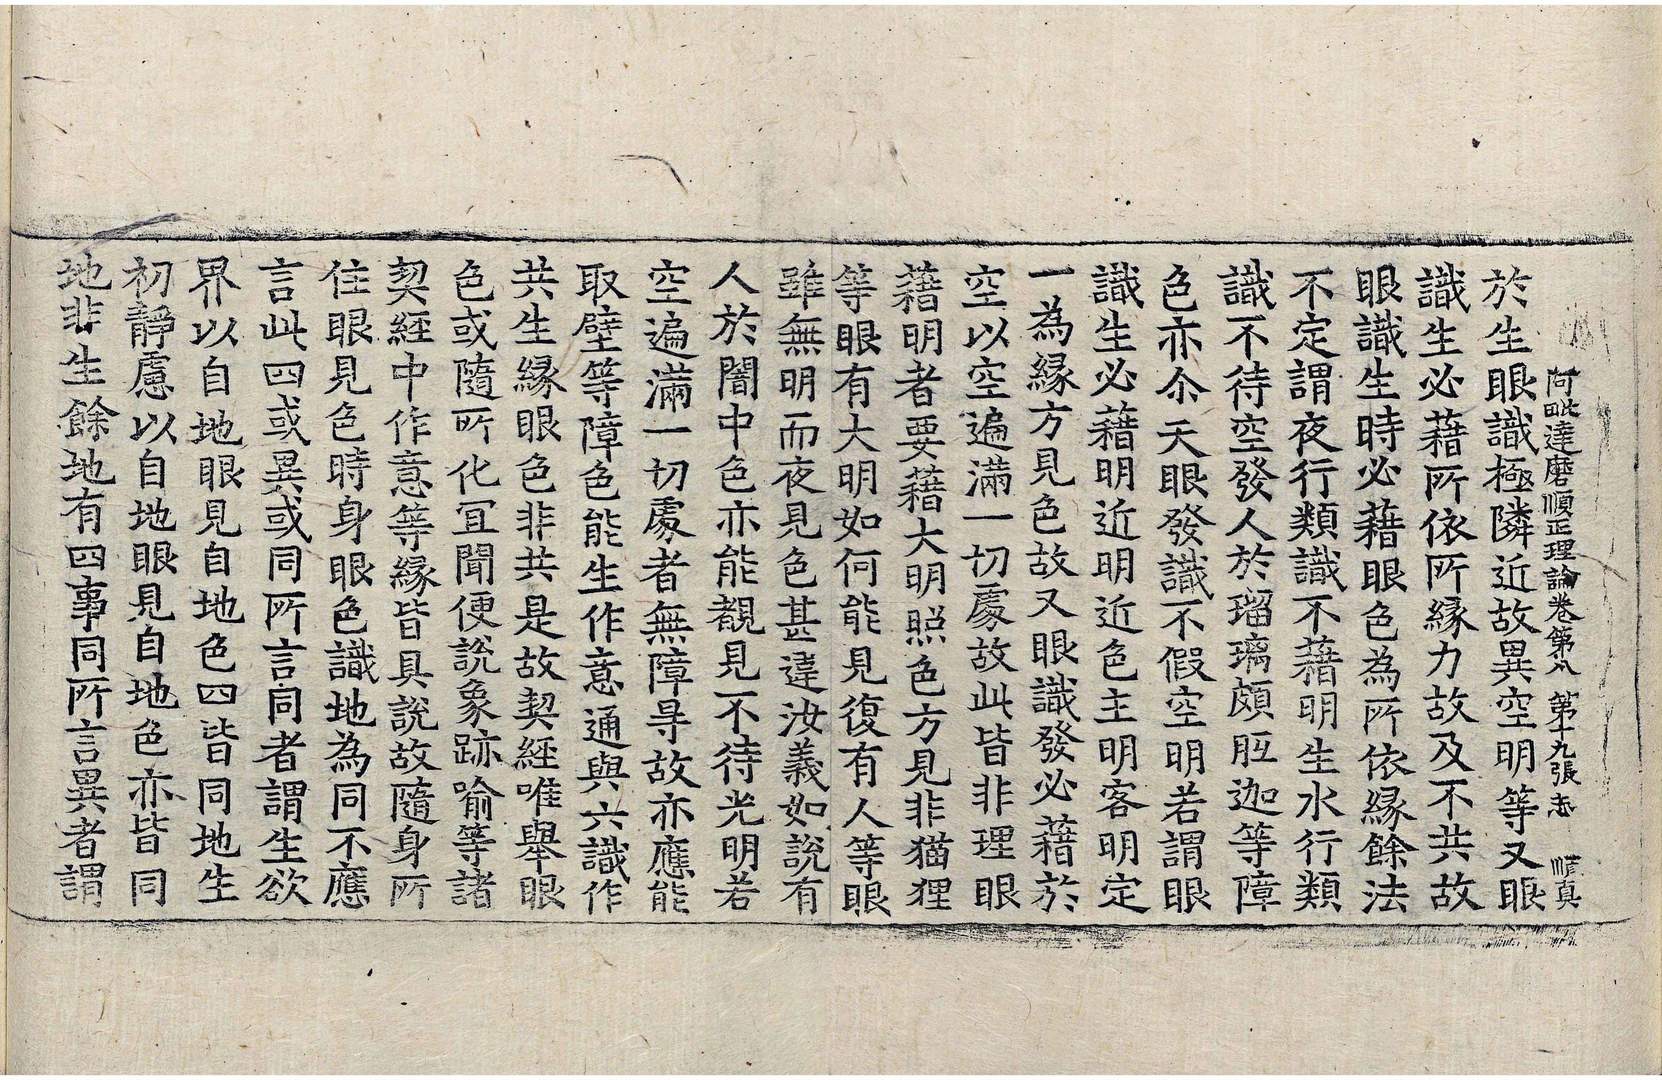 阿毗達磨順正理論卷第八　第十九張　志　修真
於生眼識極隣近故異空明等又眼
識生必藉所依所緣力故及不共故
眼識生時必藉眼色為所依緣餘法
不定謂夜行類識不藉明生水行類
識不待空發人於瑠璃頗胝迦等障
色亦尒天眼發識不假空明若謂眼
識生必藉明近明近色主明客明定
一為緣方見色故又眼識發必藉於
空以空遍滿一切處故此皆非理眼
藉明者要藉大明照色方見非猫狸
等眼有大明如何能見復有人等眼
雖無明而夜見色甚違汝義如說有
人於闇中色亦能覩見不待光明若
空遍滿一切處者無障㝵故亦應能
取壁等障色能生作意通與六識作
共生緣眼色非共是故契經唯舉眼
色或隨所化宜聞便說象跡喻等諸
契經中作意等緣皆具說故隨身所
住眼見色時身眼色識地為同不應
言此四或異或同所言同者謂生欲
界以自地眼見自地色四皆同地生
初靜慮以自地眼見自地色亦皆同
地非生餘地有四事同所言異者謂